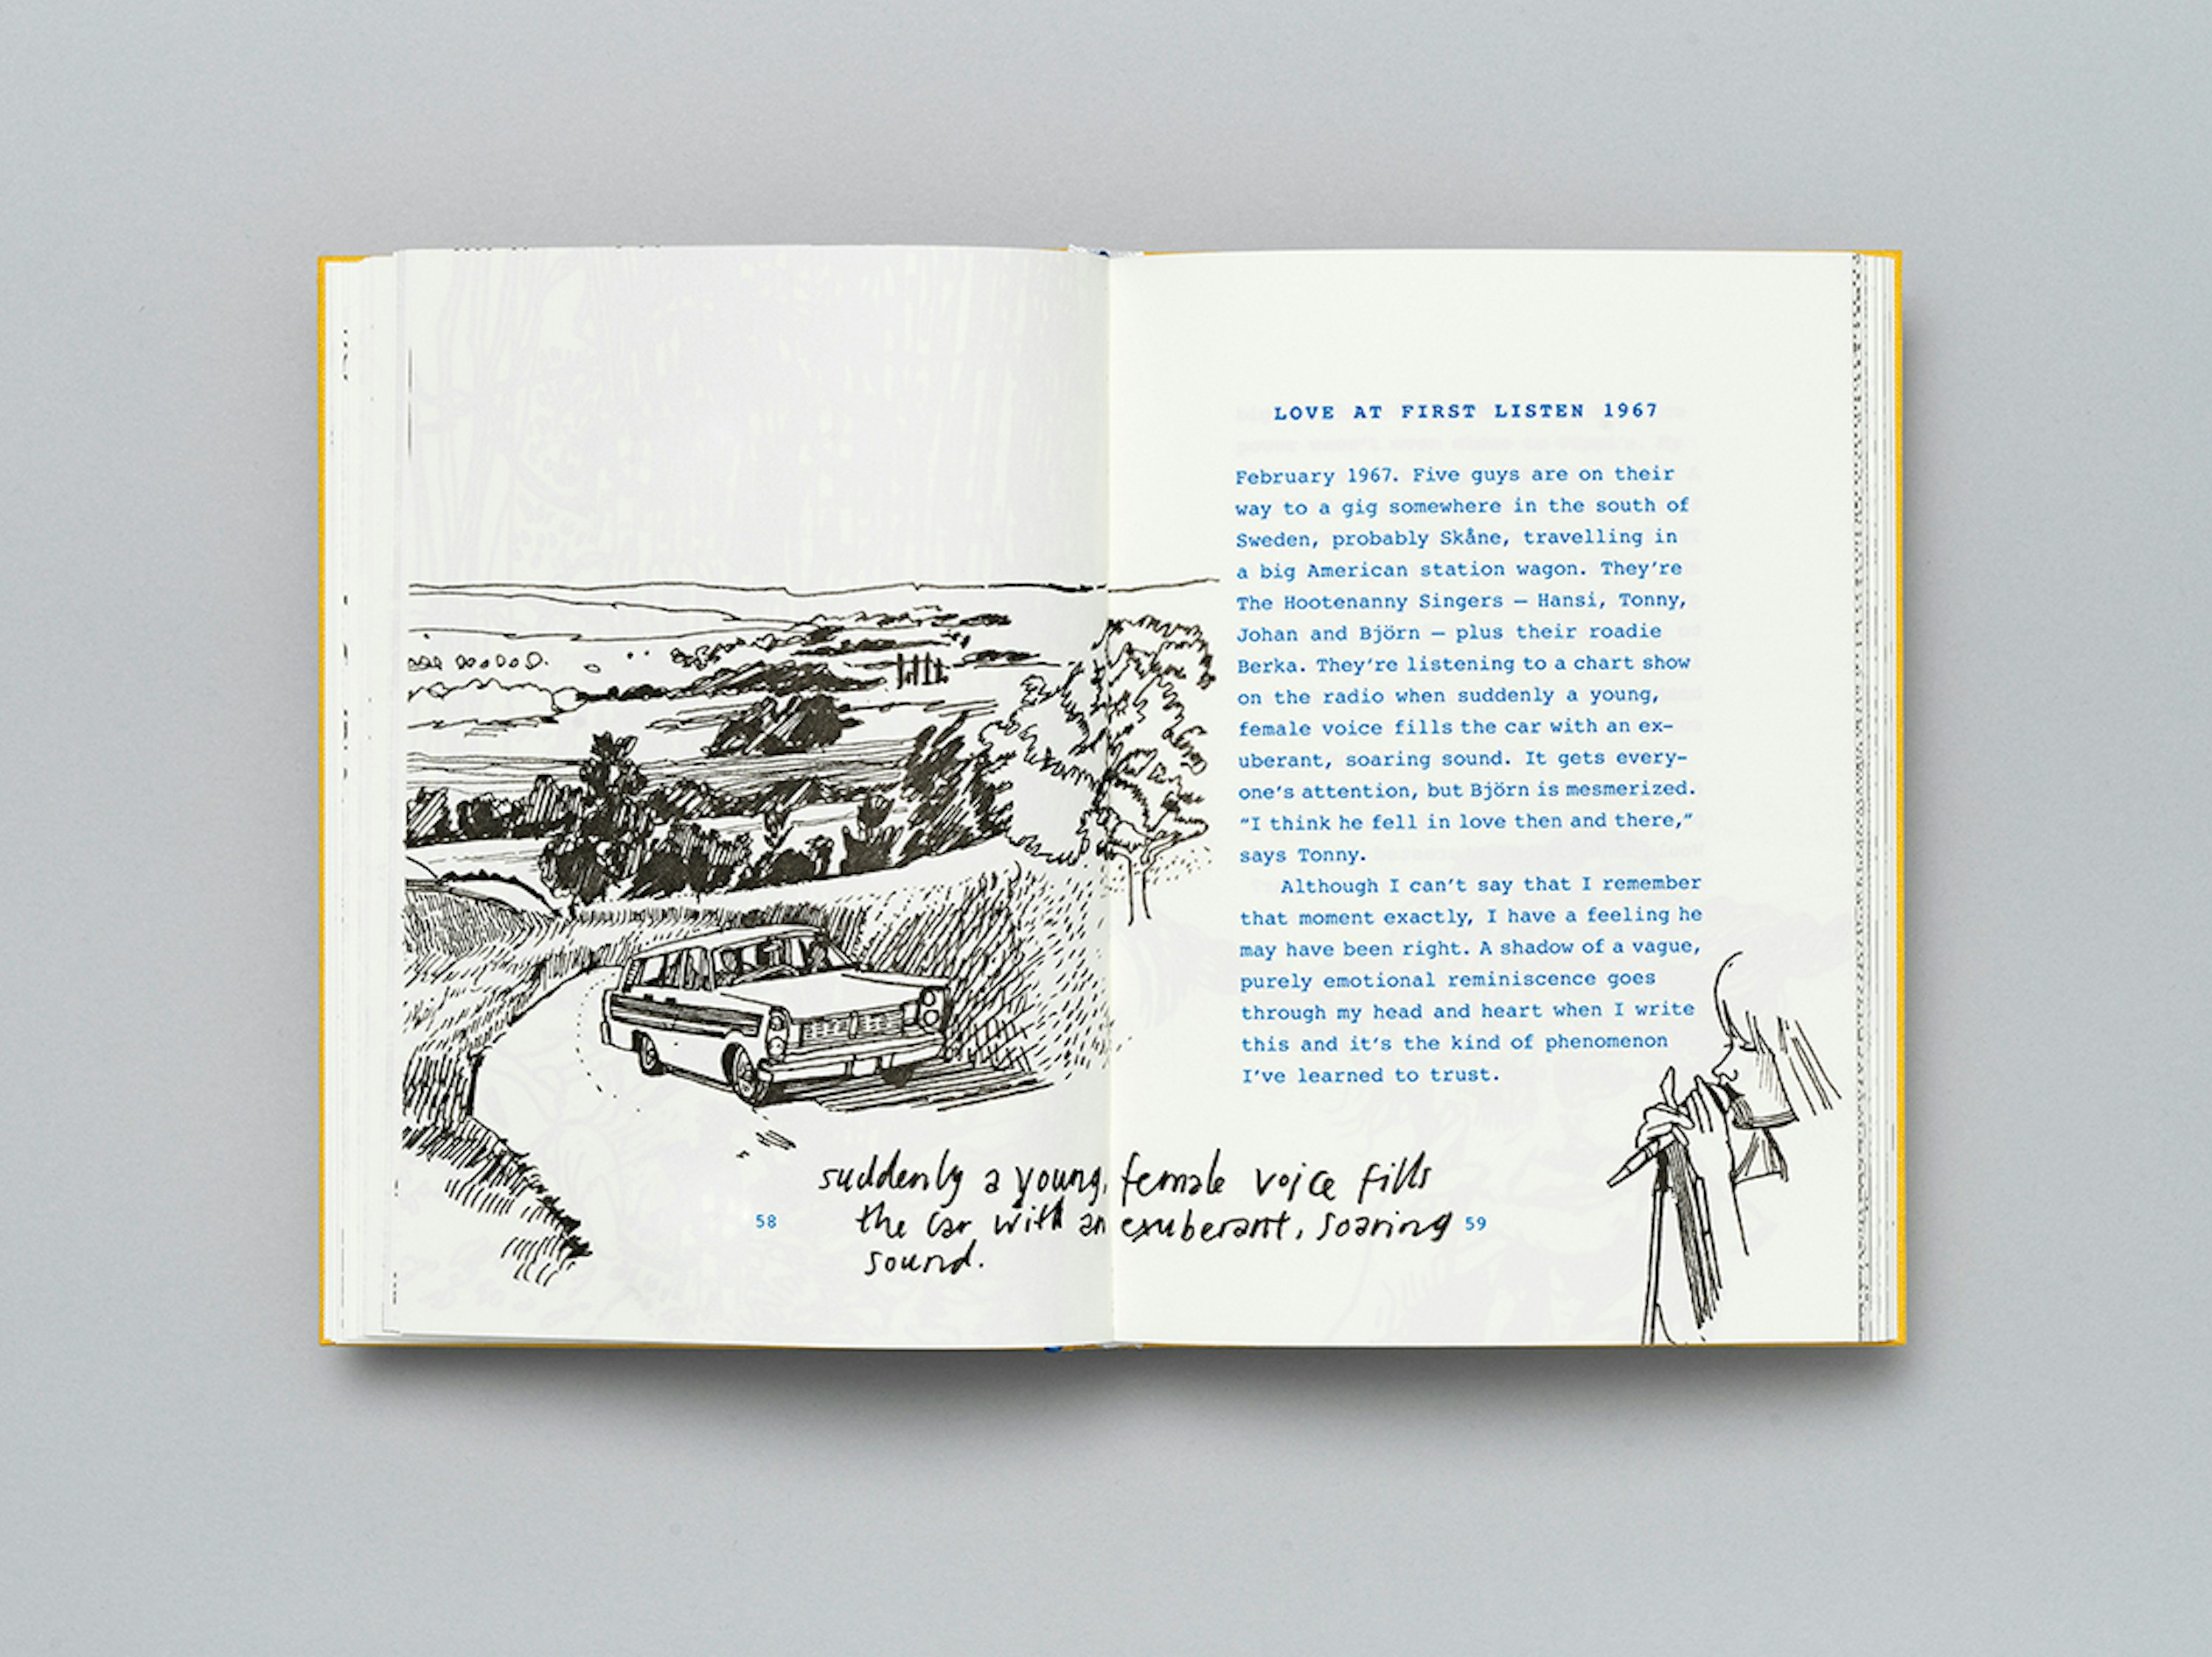 LOVE AT FIRST LISTEN 1967
February 1967. Five guys are on their
way to a gig somewhere in the south of
Sweden, probably Skåne, travelling in
a big American station wagon. They're
The Hootenanny Singers — Hansi, Tonny,
Johan and Björn — plus their roadie
Berka. They're listening to a chart show
on the radio when suddenly a young,
female voice fills the car with an ex-
uberant, soaring sound. It gets every-
one's attention, but Björn is mesmerized.
"I think he fell in love then and there,"
says Tonny.
Although I can't say that I remember
that moment exactly, I have a feeling he
may have been right. A shadow of a vague,
purely emotional reminiscence goes
through my head and heart when I write
this and it's the kind of phenomenon
I've learned to trust.
suddenly a young, female voice fills
the car with an exuberant, soaring
sound.
58
59